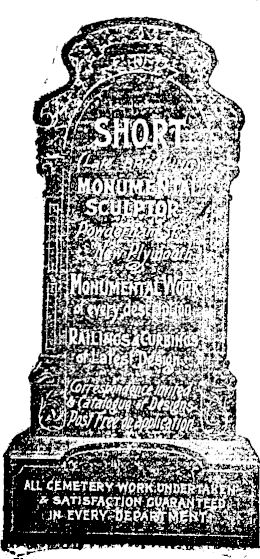 SHORT
MONUMENTAL
SCULPTOR
New Plymouth
MONUMENTAL WORK
of every description
RAILINGS & CURBINGS
of Latest Designs
Correspondence Invited
& Catalogue of Designs
Post Free on application
ALL CEMETERY WORK UNDERTAKEN
& SATISFACTION GUARANTEED
IN EVERY DEPARTMENT